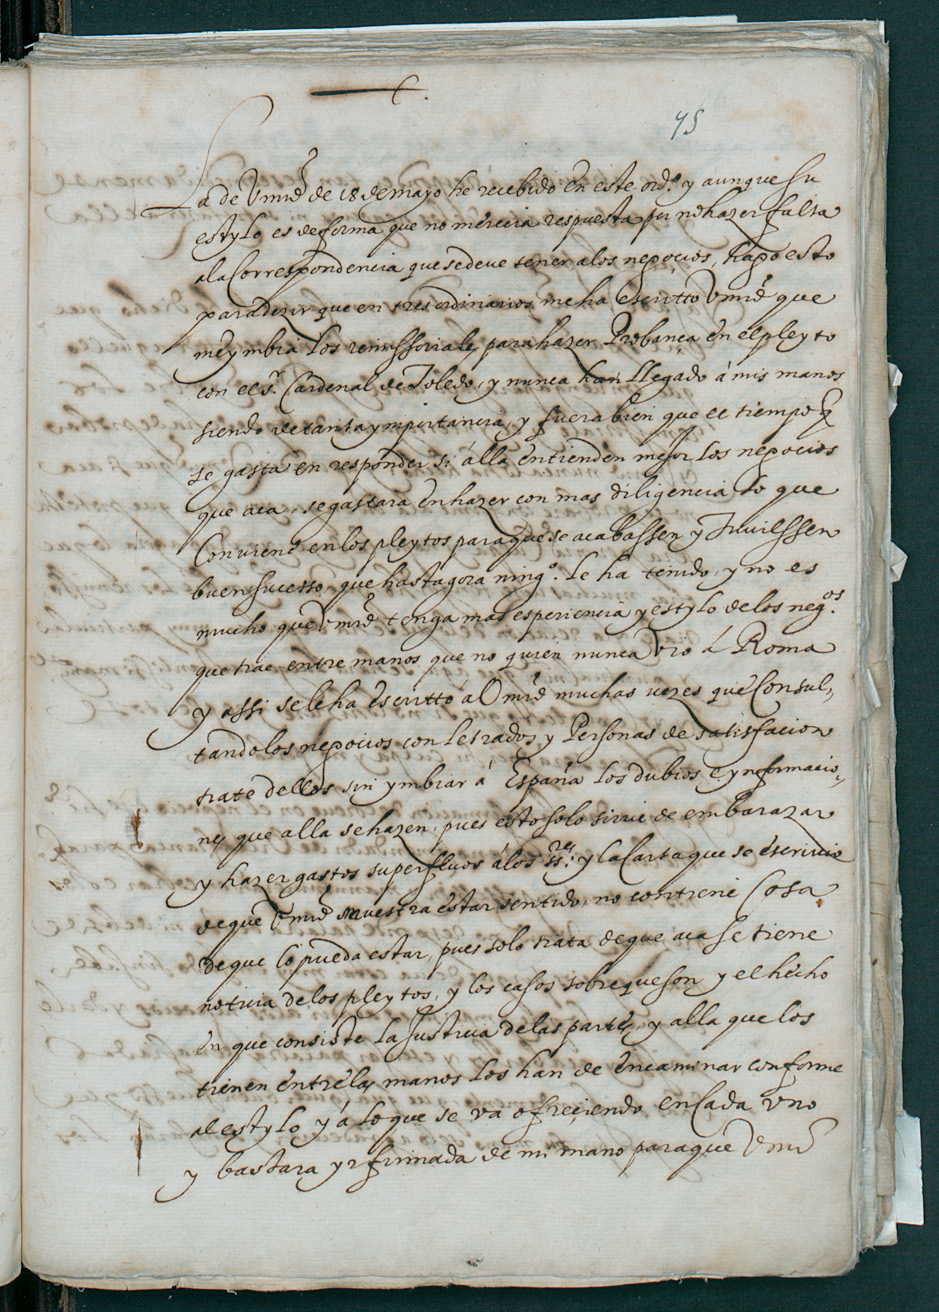 95
La de Vmrd de 18 de mayo he recebido en este ordº. y aunque su
estylo es de forma que no mereçia respuesta por no hazer falta
a la Correspondencia que se deve tener a los negoçios, hago esto
para dezir que en tres ordinarios me ha escritto Vmrd que
me ymbia los remissoriales para hazer Probança en el pleyto
con el sr. Cardenal de Toledo, y nunca han llegado à mis manos
siendo de tanta ymportancia, y fuera bien que el tiempo q
se gasta en responder si álla entienden mejor los negocios
que aca, se gastara en hazer con mas diligencia lo que
Conviene en los pleytos para que se acabassen y tuviessen
buen sucesso, que hasta gora ningº. le ha tenido, y no es
mucho que Vmrd tenga mas esperiencia y estylo de los negos.
que trae entre manos que no quien nunca vio á Roma
y assi se le ha escritto á Vmrd muchas vezes que Consul,
tando los negocios con Letrados y Personas de satisfacion
trate dellos sin ymbiar á España los dubios e ynformacio,
nes que alla se hazen, pues esto solo sirve de embarazar
y hazer gastos superfluos álos sres. y la Carta que se escrivio
de que Vmrd muestra estar sentido, no contiene Cosa
de que lo pueda estar, pues solo trata de que aca se tiene
noticia de los pleytos, y los casos sobre que son, y el hecho
en que consiste la Justicia de las partes, y alla que los
tienen entre las manos los han de encaminar conforme
al estylo y á lo que se va ofreçiendo en Cada uno
y bastara yr firmada de mi mano para que Vmrd